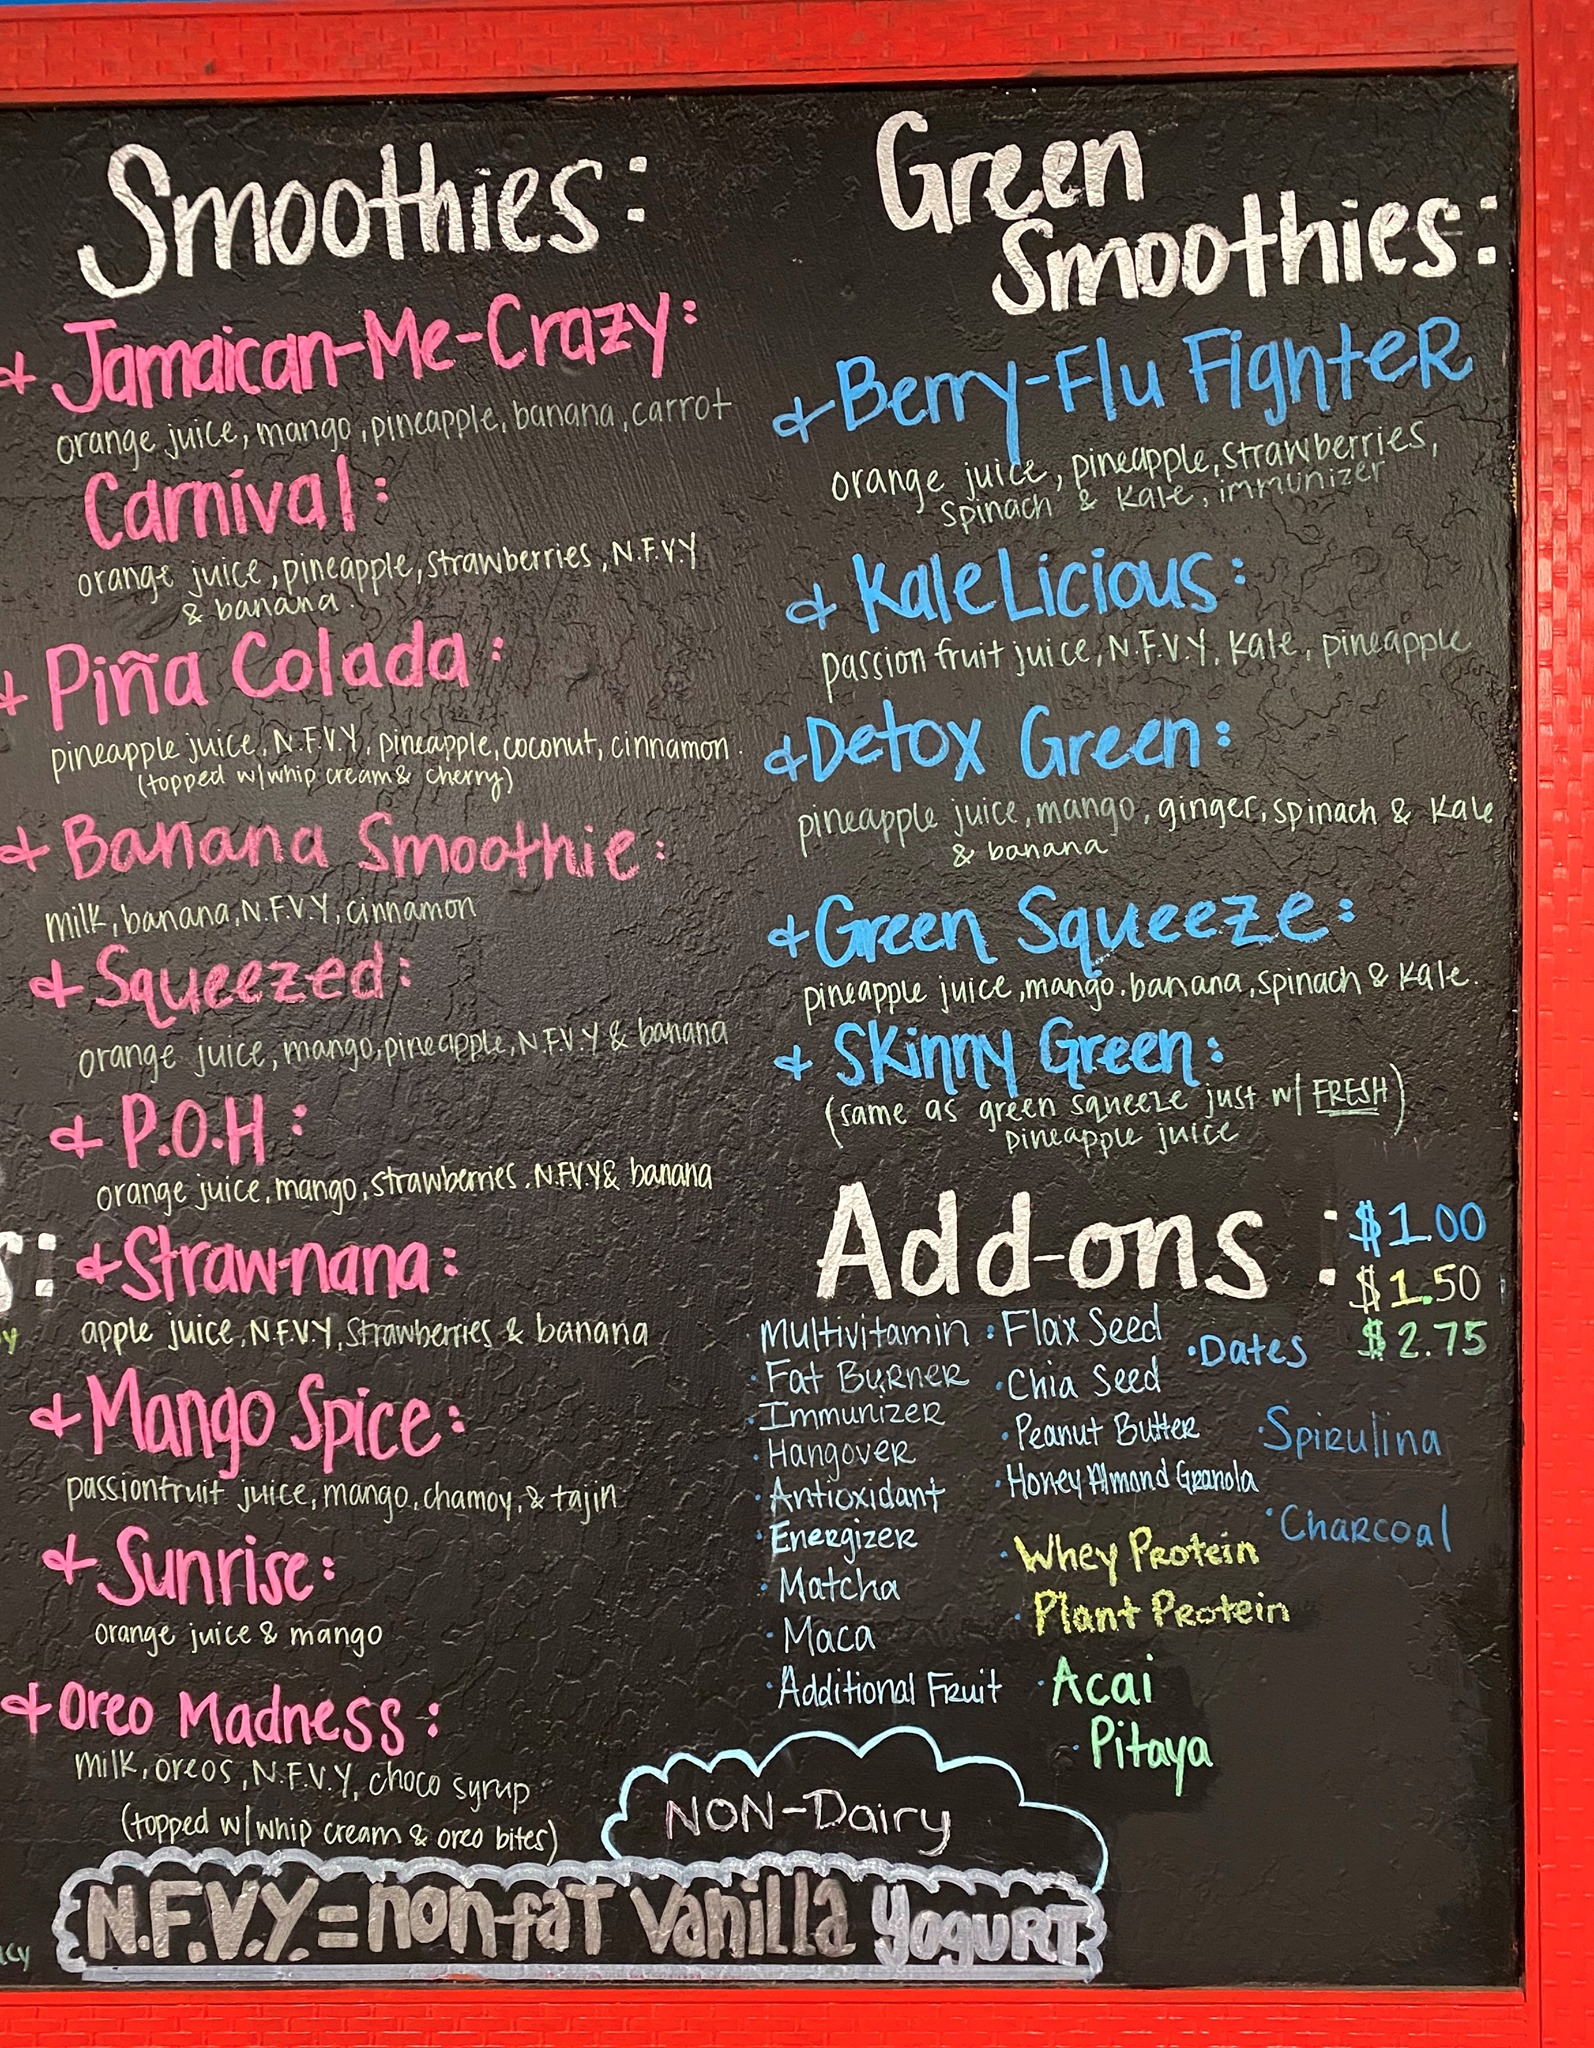 Smoothies:
Jamaican-Me-Crazy:
orange juice, mango, pineapple, banana, carrot
Carnival:
orange juice, pineapple, strawberries, N.F.V.Y
& banana.
Piña Colada:
pineapple juice, N.F.V.Y, pineapple, coconut, cinnamon.
(topped w/whip cream & cherry)
Banana Smoothie:
milk, banana, N.F.V.Y, cinnamon
Squeezed:
orange juice, mango, pineapple, N.F.V.Y & banana
P.O.H:
orange juice, mango, strawberries, N.F.V.Y & banana
Straw-nana:
apple juice, N.F.V.Y, strawberries & banana
Mango Spice:
passionfruit juice, mango, chamoy, & tajin
Sunrise:
orange juice & mango
Oreo Madness:
milk, oreos, N.F.V.Y, choco syrup
(topped w/whip cream & oreo bites)
Green
Smoothies:
Berry-Flu Fighter
orange juice, pineapple, strawberries,
spinach & kale, immunizer
KaleLicious:
passion fruit juice, N.F.V.Y, Kale, pineapple
Detox Green:
pineapple juice, mango, ginger, spinach & kale
& banana
Green Squeeze:
pineapple juice, mango, banana, spinach & kale.
Skinny Green:
(same as green squeeze just w/ FRESH)
pineapple juice
Add-ons: $1.00
$1.50
$2.75
Multivitamin
Fat Burner
Immunizer
Hangover
Antioxidant
Energizer
Matcha
Maca
Additional Fruit
Flax Seed
Chia Seed
Peanut Butter
Honey Almond Granola
Whey Protein
Plant Protein
Acai
Pitaya
Dates
Spirulina
Charcoal
NON-Dairy
N.F.V.Y. = non-fat vanilla yogurt